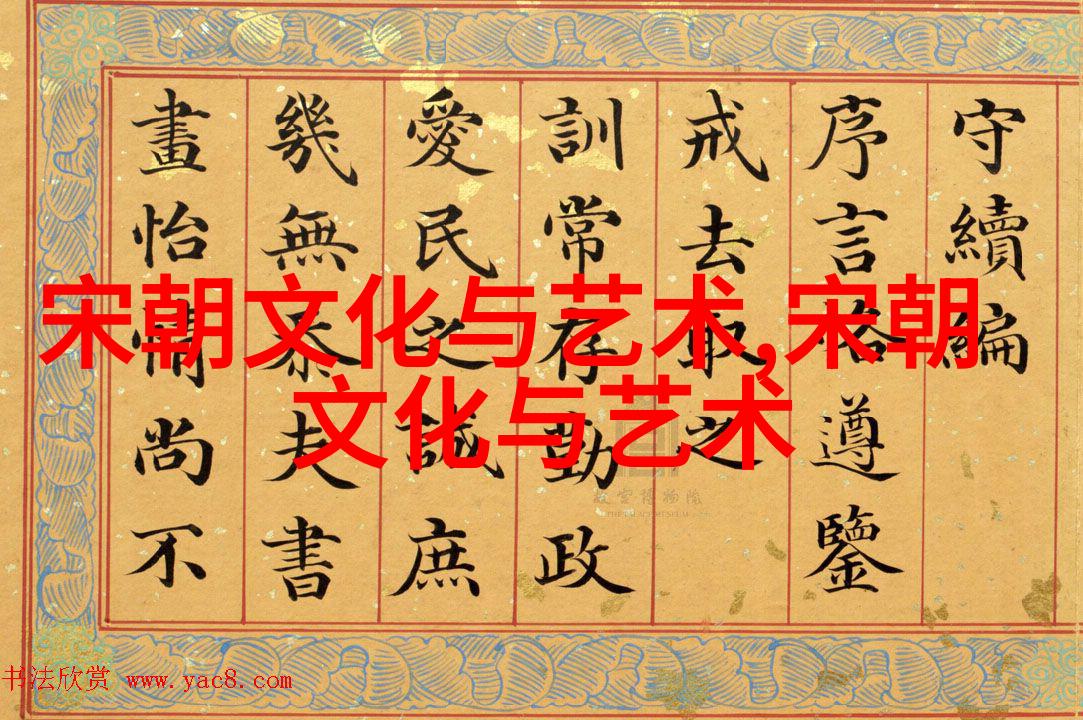 宋朝文化与艺术,宋朝
文化与艺术
守續編
序言略遵鑒
戒去取之
訓常存勤政
愛民之誠庶
幾無忝夫書
畫怡情尚不
故宫博物院
THE PALACE MUSEUM
书法欣赏 www.yac8.com